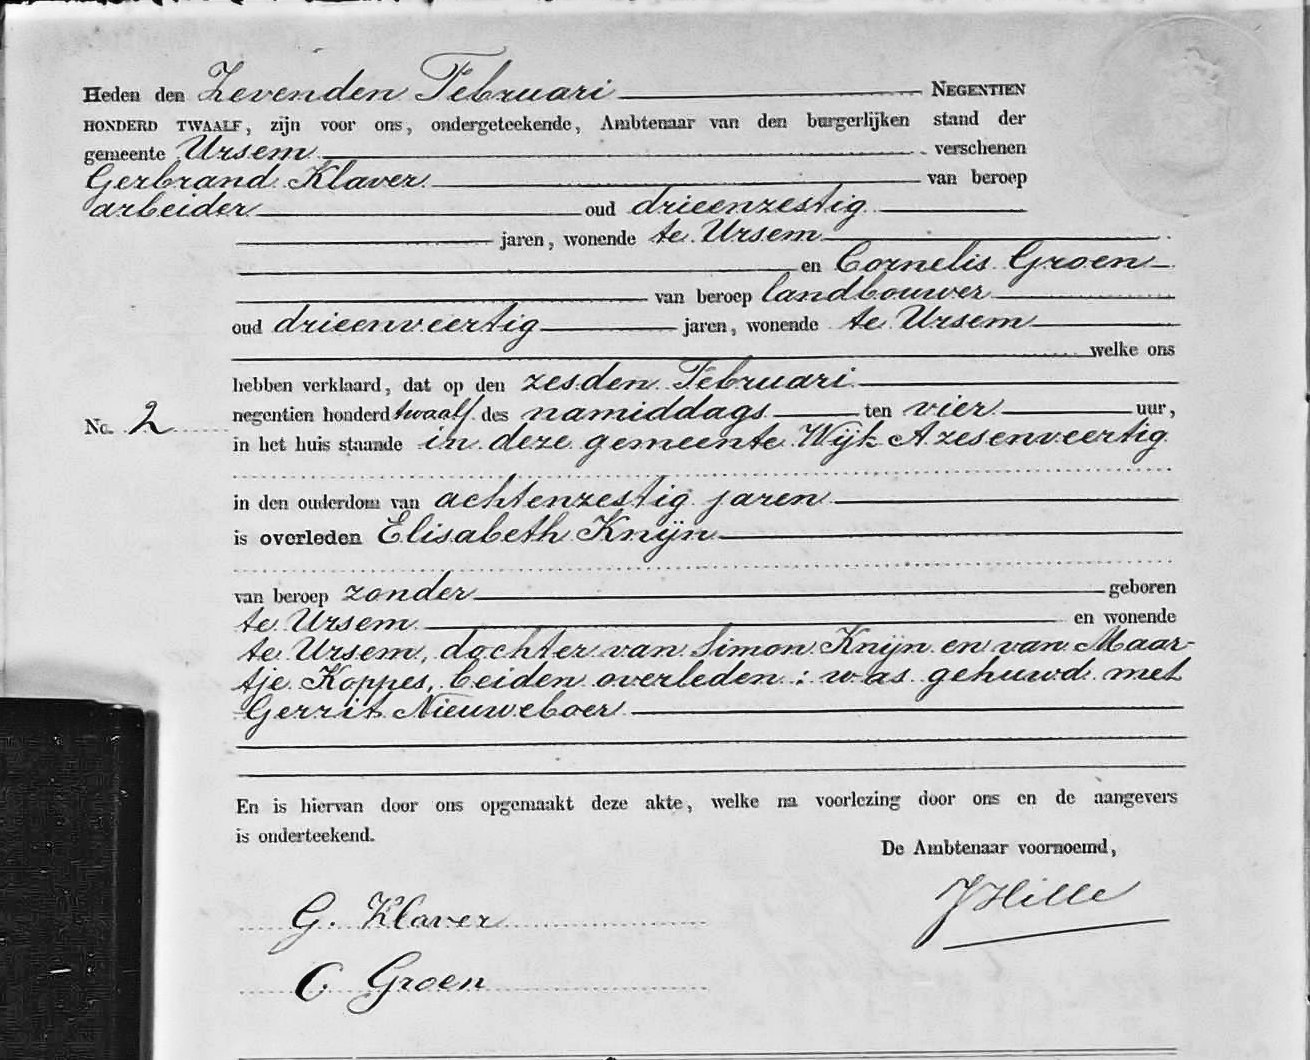 Heden den Zevenden Februari NEGENTIEN
HONDERD TWAALF, zijn voor ons, ondergeteekende, Ambtenaar van den burgerlijken stand der
gemeente Ursem verschenen
Gerbrand Klaver van beroep
arbeider oud drieenzestig
jaren, wonende te Ursem
en Cornelis Groen
van beroep landbouwer
oud drieenveertig jaren, wonende te Ursem
welke ons
hebben verklaard, dat op den zesden Februari
negentien honderd twaalf des namiddags ten vier uur,
No. 2
in het huis staande in deze gemeente Wijk A zesenveertig
in den ouderdom van achtenzestig jaren
is overleden Elisabeth Knijn
van beroep zonder geboren
te Ursem en wonende
te Ursem, dochter van Simon Knijn en van Maar-
tje Koppes, beiden overleden; was gehuwd met
Gerrit Nieuweboer
En is hiervan door ons opgemaakt deze akte, welke na voorlezing door ons en de aangevers
is onderteekend.
De Ambtenaar voornoemd,
G. Klaver
JHille
C Groen